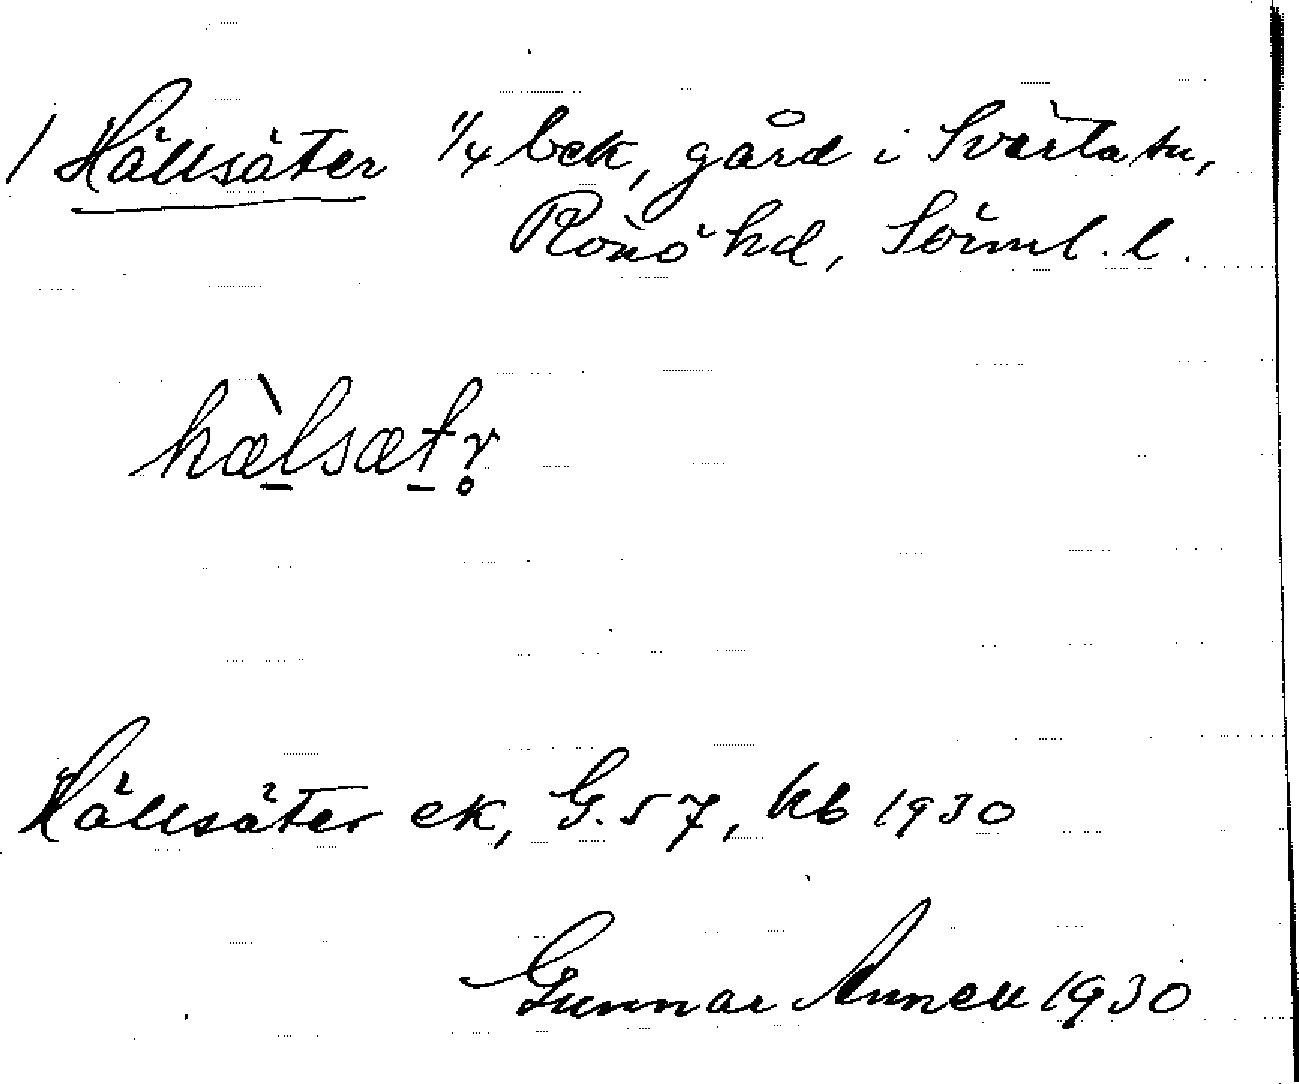 1 Hällsäter 1/4 bek, gård i Svärta sn,
Rönö hd, Söiml. l.
hæ̀l̠sæt̠r̥
Hällsäter ek, G. 57, kb 1930
Gunnar Annell 1930